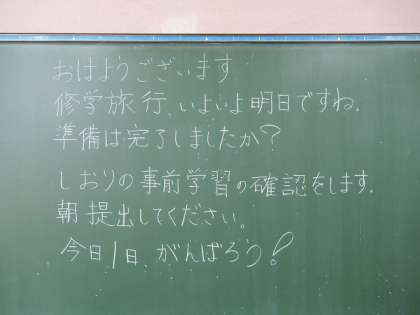 おはようございます
修学旅行、いよいよ明日ですね.
準備は完了しましたか?
しおりの事前学習の確認をします.
朝提出してください。
今日1日、がんばろう!